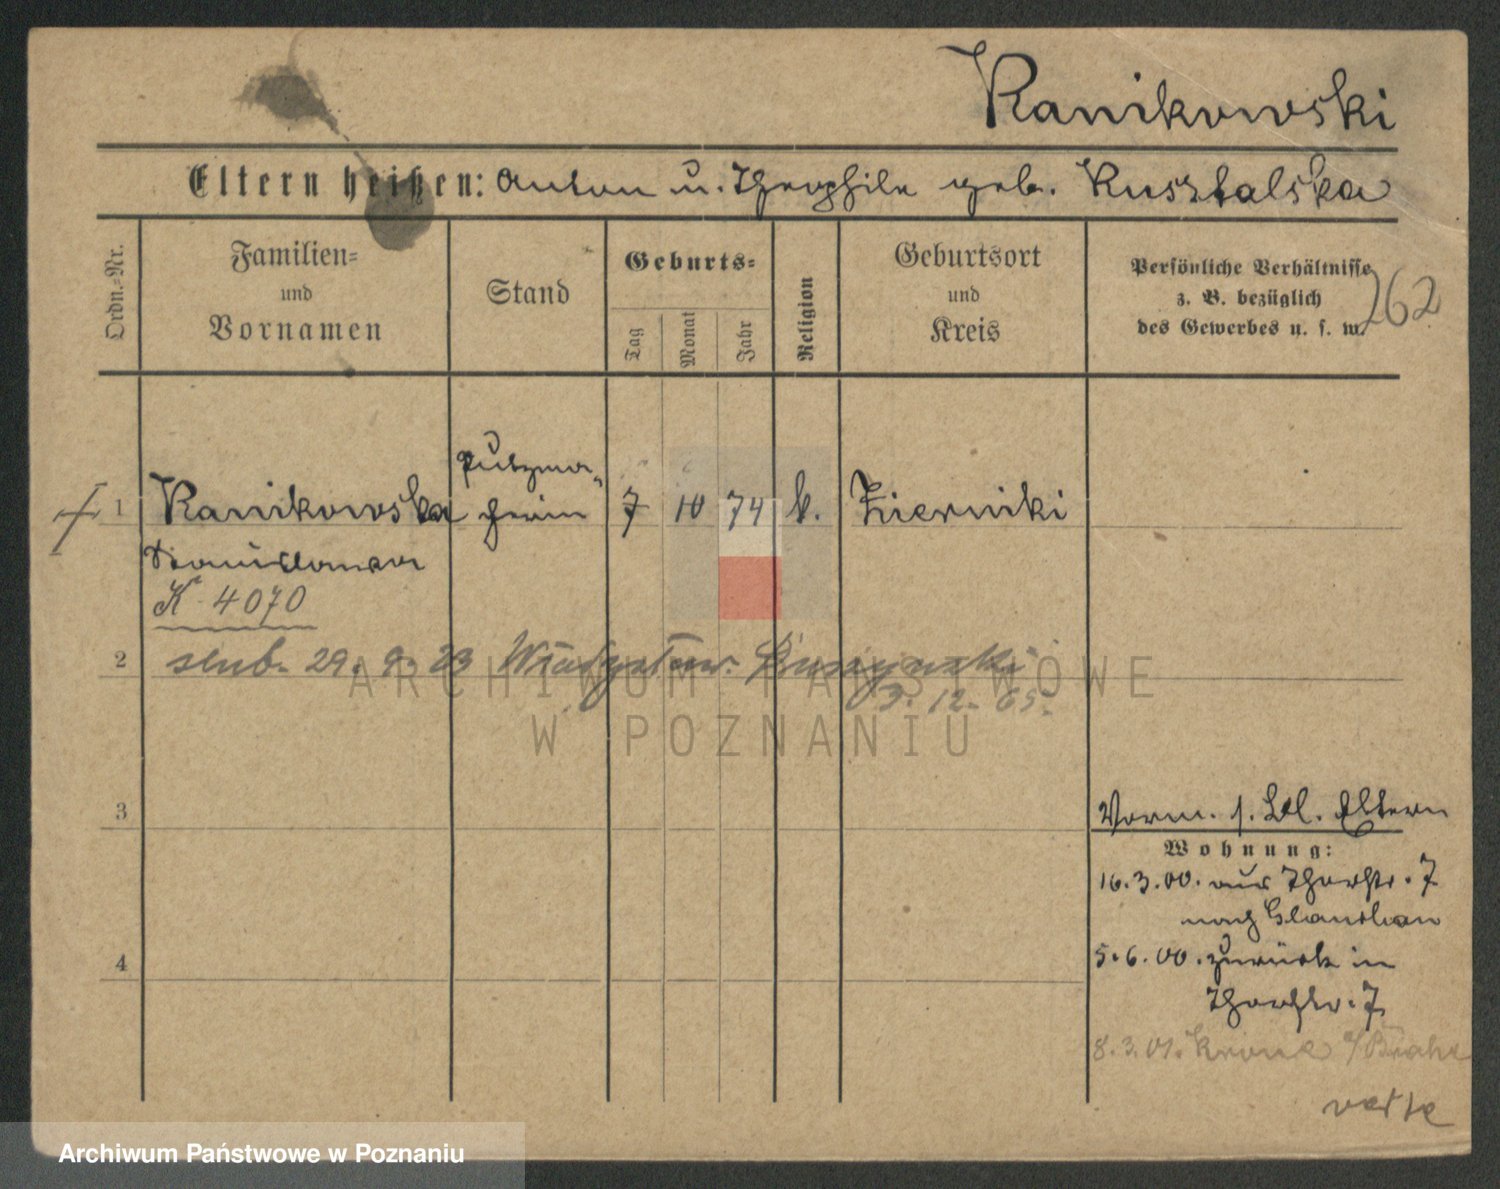 Ranikowski
Eltern heißen: Anton u. Theophile geb. Kusztalska
Ordn.-Nr.
Familien-
und
Vornamen
Stand
Geburts-
Tag
Monat
Jahr
Religion
Geburtsort
und
Kreis
Persönliche Verhältnisse
z. B. bezüglich
des Gewerbes u. s. w.
262
Putzma-
1 Ranikowska cherin 7 10 74 k. Zierniki
Stanislawa
K 4070
2 slub. 29. 9. 23 Władysław
3. 12. 65.
ARCHIWUM PAŃSTWOWE
W POZNANIU
3
Vorm. s. Bl. Eltern
Wohnung:
16.3.00. aus Thorstr. 7
nach Glauchau
4
5.6.00. zurück in
Thorstr. 7
8.3.01. Krone a/Brahe
verte
Archiwum Państwowe w Poznaniu